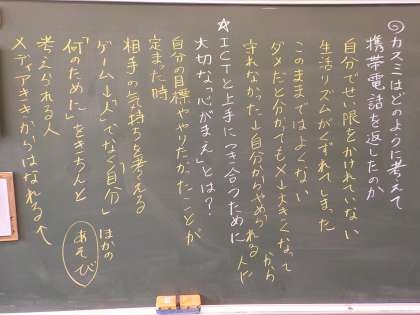 ◎カスミはどのように考えて
携帯電話を返したのか
自分でせい限をかけれていない
生活リズムがくずれてしまった
このままではよくない
ダメだと分かってもメ→大きくなってから
守れなかった→自分からやめられる人に
☆ICTと上手につき合うために
大切な「心がまえ」とは?
自分の目標ややりたかったことが
定まった時
相手の気持ちを考える
ゲーム→人」でなく自分」
「何のために」をきちんと
考えられる人
メディアききからはなれる←
ほかの
あそび